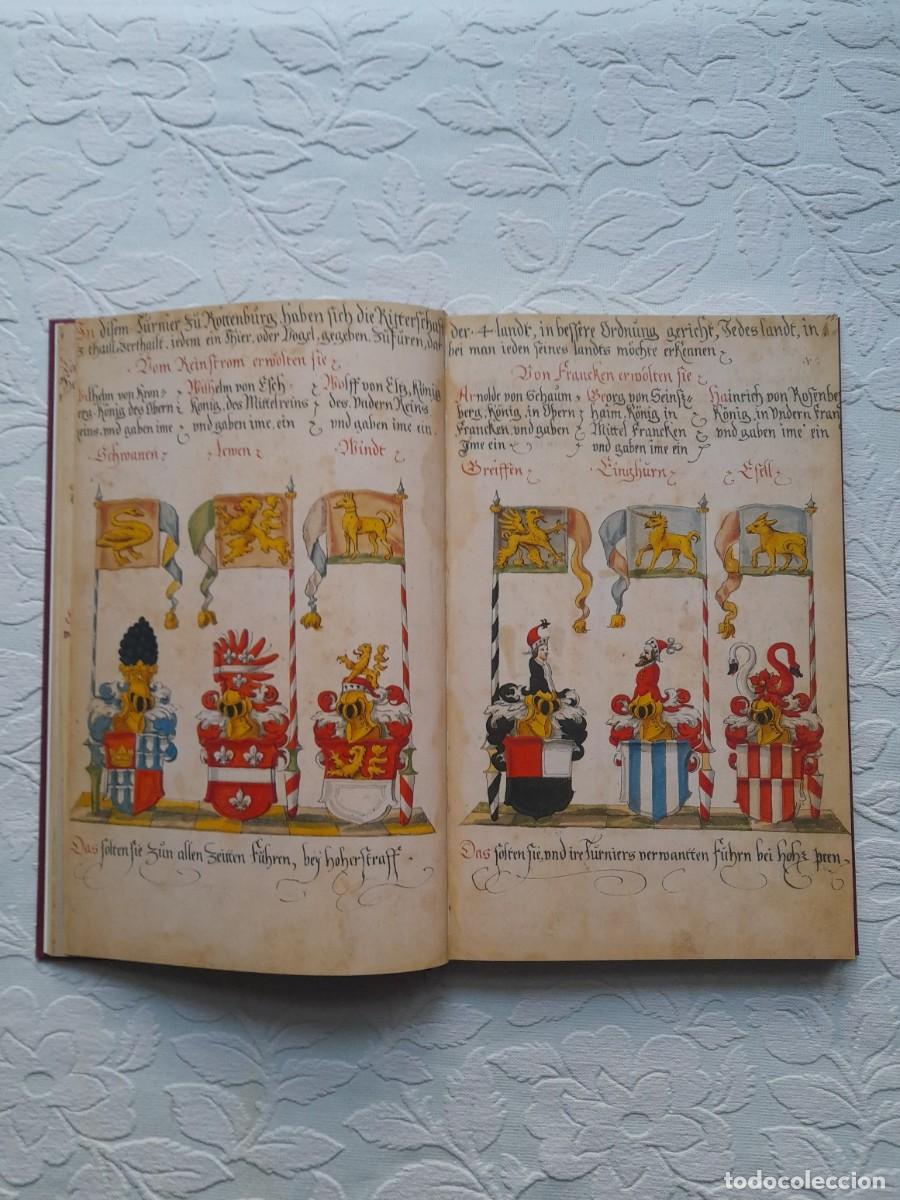 In disem Turnier zu Rottenburg, haben sich die Ritterschafft
der 4 landt, in bessere Ordnung gericht, Jedes landt, in
3 thail, zerthailt, iedem ein Thier, oder Vogel, gegeben, zufüren, dar
bei man ieden seines landes möchte erkennen
Vom Reinstrom erwölten sie
Wilhelm von Kron-
berg, König des Obern
Reins, vnd gaben ime ein
Schwanen
Wilhelm von Esch
König, des Mittelreins
vnd gaben ime, ein
Lewen
Wolff von Eltz, König
des, Vndern Reins,
vnd gaben ime ein
Windt
Das solten sie Zun allen Zeitten führen, bey hoher straff
Von Francken erwölten sie
Arnolde von Schaum
berg, König, in Obern
Francken, vnd gaben
Ime ein
Greiffen
Georg von Seinß-
haim, König in
Mittel Francken
vnd gaben ime ein
Einghürn
Hainrich von Rosenbe
König, in Vndern Fran
vnd gaben ime ein
Esell
Das solten sie, vnd ire Turniers verwantten führn bei hohe peen
todocoleccion